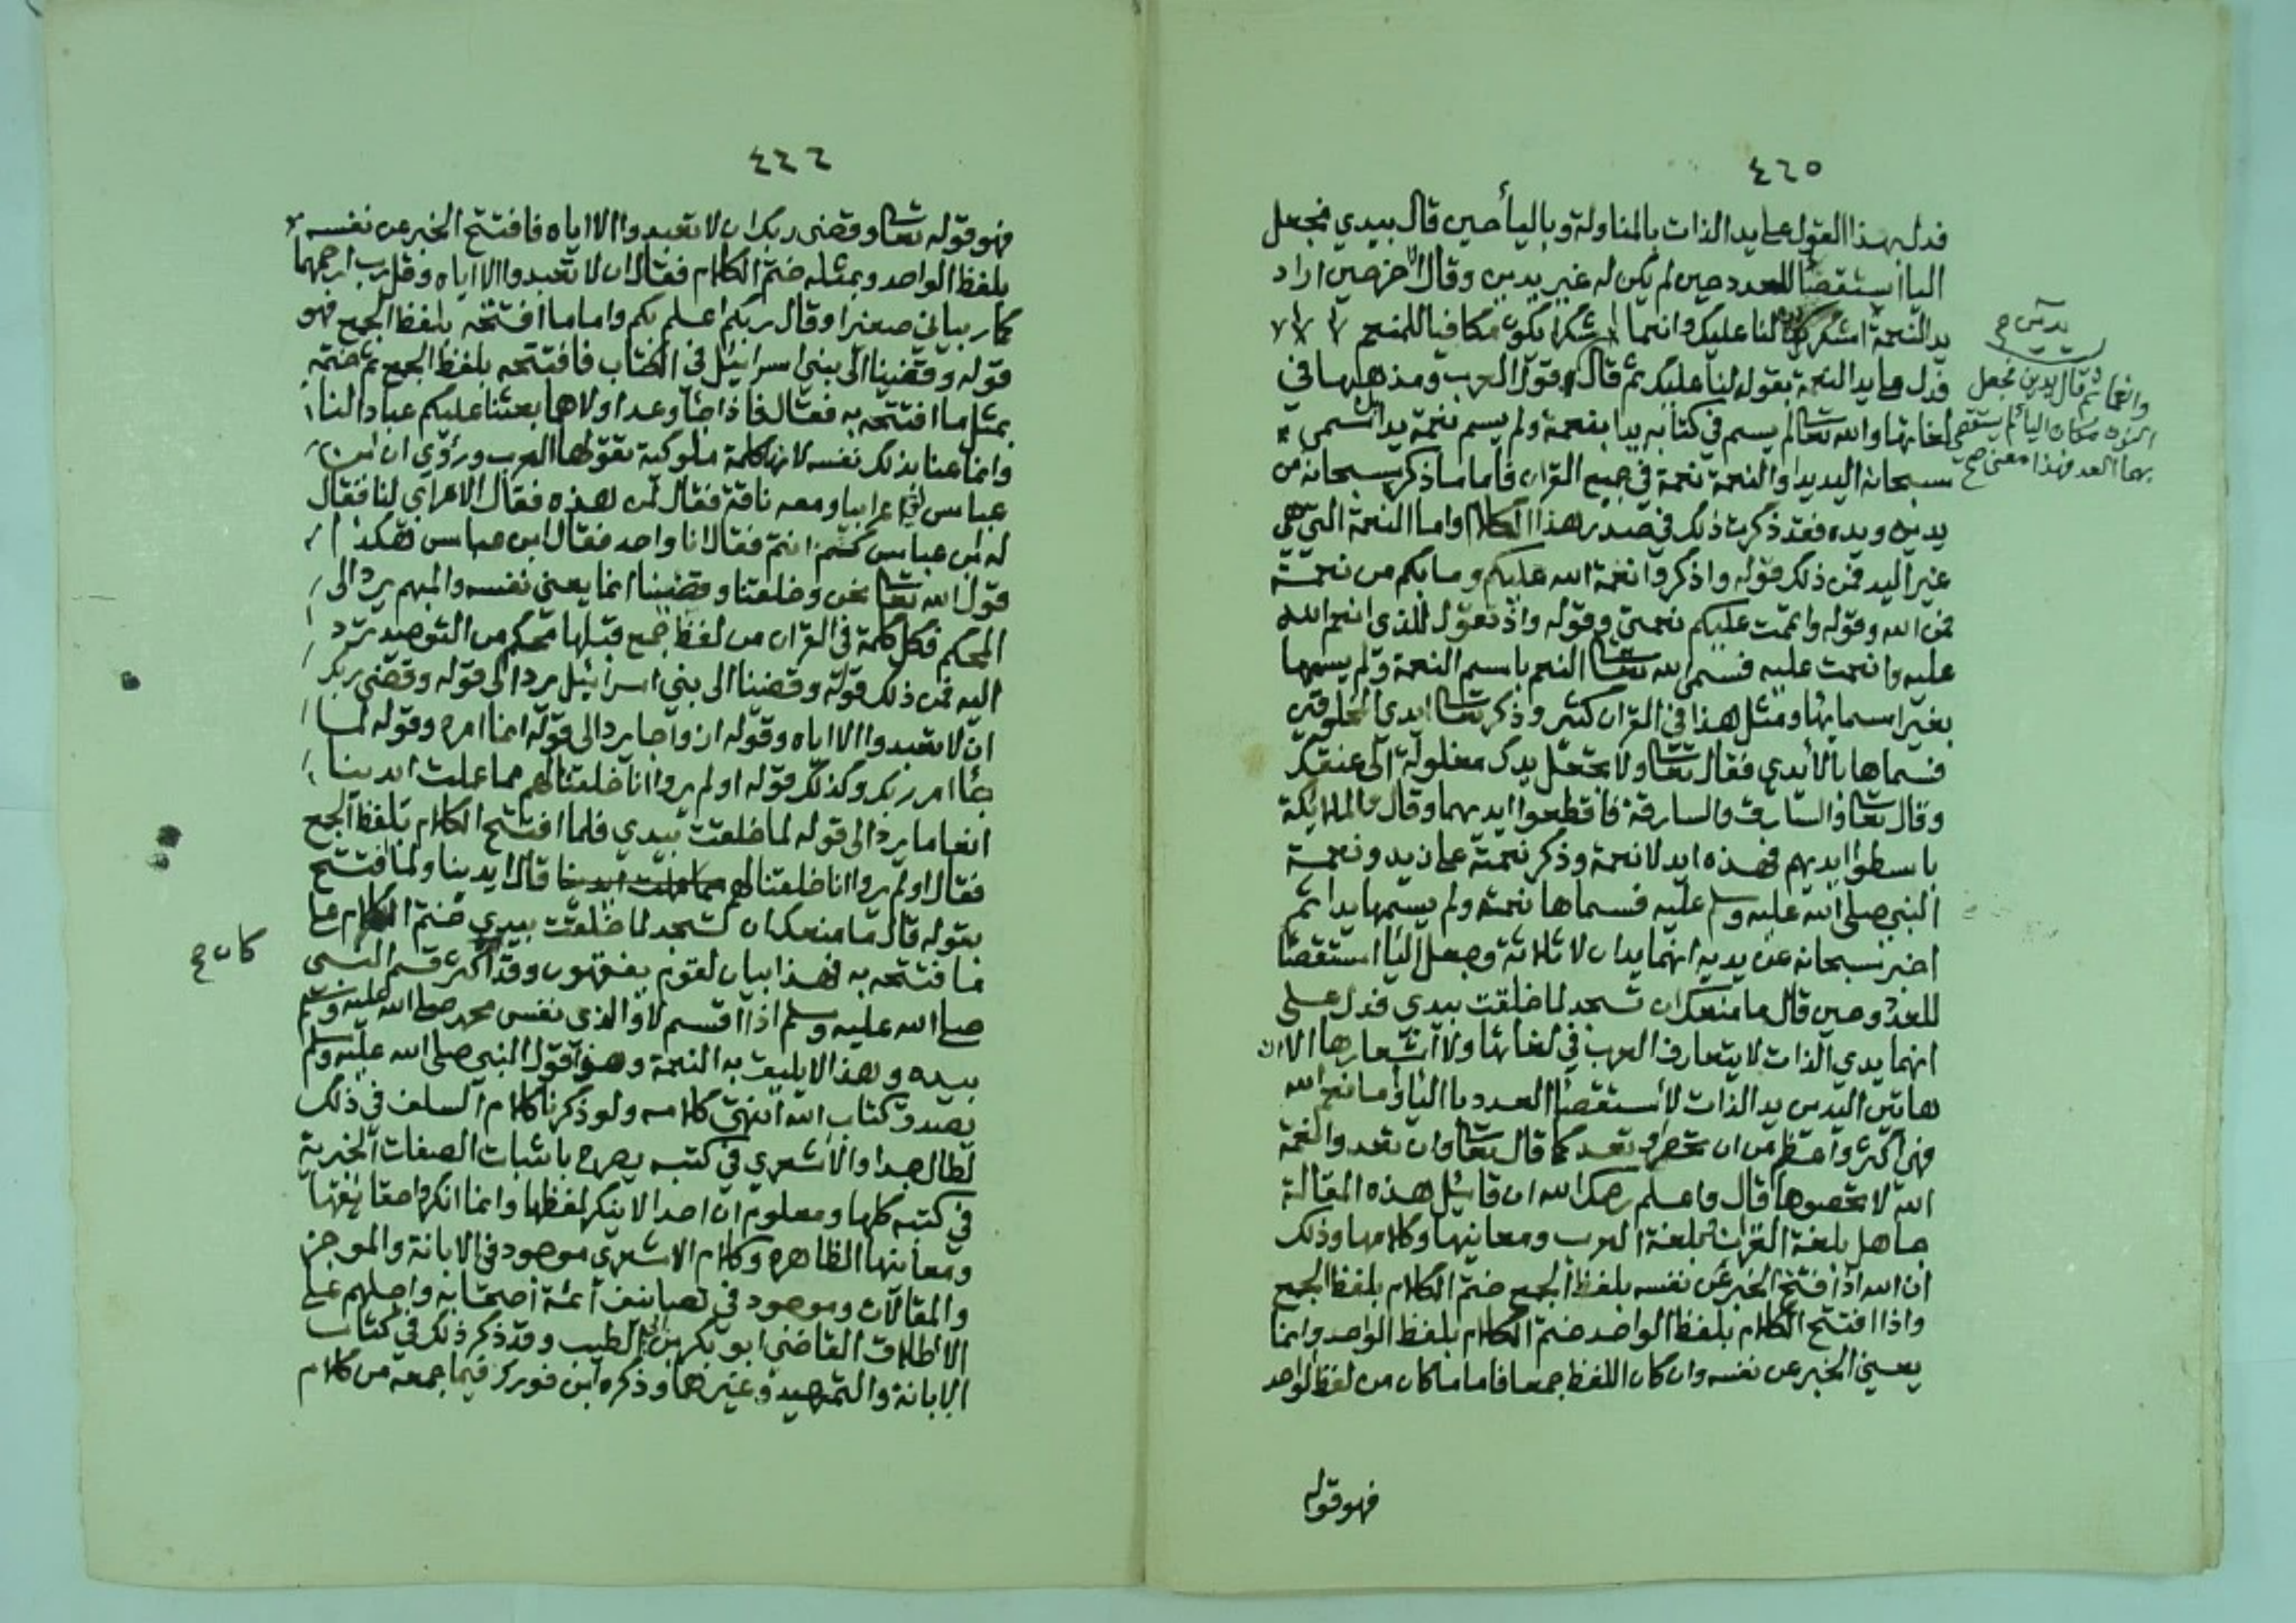 ٤٦٥
فدل بهذا القول على يد الذات بالمناولة وباليأ حين قال بيدي فجعل
اليا استقصأ للعدد حين لم يكن له غير يدين وقال الاخر حين اراد
يد النعمة اشكر لنا عليك وانعما شكرا يكون مكافيا للمنعم
فدل على يد النعمة بقوله لنا عليك ثم قال قول العرب ومذهبها في
لغاتها والله تعالى لم يسم في كتابه يدا بنعمة ولم يسم نعمة يدا سمى
سبحانه اليد يدا والنعمة نعمة في جميع القران فاما ما ذكر سبحانه من
يدين ويده فقد ذكرت ذلك في صدر هذا الكلام واما النعمة التي هي
غير اليد فمن ذلك قوله واذكروا نعمة الله عليكم وما بكم من نعمة
فمن الله وقوله واتممت عليكم نعمتي وقوله واذ تقول للذي انعم الله
عليه وانعمت عليه فسمى الله تعالى النعم باسم النعمة ولم يسمها
بغير اسمايها ومثل هذا في القران كثير وذكر تعالى ايدي المخلوقين
فسماها بالأيدي فقال تعالى ولا تجعل يدك مغلولة الى عنقك
وقال تعالى والسارق والسارقة فاقطعوا ايديهما وقال والملايكة
باسطوا ايديهم فهذه ايد لا نعمة وذكر نعمته على زيد ونعمة
النبي صلى الله عليه وسلم عليه فسماها نعمة ولم يسمها يدا ثم
اخبر سبحانه عن يديه انهما يدان لا ثلاثة وجعل اليا استقصأ
للعدد حين قال ما منعك ان تسجد لما خلقت بيدي فدل على
انهما يدي الذات لا يتعارف العرب في لغاتها ولا اشعارها الا ان
هاتين اليدين يد الذات لأستقصأ العدد باليا وما نعم الله
فهي اكثر واعظم من ان تحصر او تعد كما قال تعالى وان تعدوا نعمة
الله لا تحصوها قال واعلم رحمك الله ان قائل هذه المقالة
جاهل بلغة القران بلغة العرب ومعانيها وكلامها وذلك
ان الله اذا افتتح الخبر عن نفسه بلفظ الجمع ختم الكلام بلفظ الجمع
واذا افتتح الكلام بلفظ الواحد ختم الكلام بلفظ الواحد وانما
يعني الخبر عن نفسه وان كان اللفظ جمعا فاما ما كان من لفظ الواحد
فهو قوله
يدين صح
وانما ثم قال يدين فجعل
النون مكان اليا لم يستقص
بهما العد فهذا معنى صح
٤٦٦
فهو قوله تعالى وقضى ربك ان لا تعبدوا الا اياه فافتتح الخبر عن نفسه
بلفظ الواحد وبمثله ختم الكلام فقال ان لا تعبدوا الا اياه وقل رب ارحمهما
كما ربياني صغيرا وقال ربكم اعلم بكم واما ما افتتحه بلفظ الجمع فهو
قوله وقضينا الى بني اسرائيل في الكتاب فافتتحه بلفظ الجمع ثم ختمه
بمثل ما افتتحه به فقال فاذا جأ وعد اولاهما بعثنا عليكم عبادا لنا
وانما عنا بذلك نفسه لانها كلمة ملوكية تقولها العرب ورؤي ان ابن
عباس لقي اعرابيا ومعه ناقة فقال لمن هذه فقال الاعرابي لنا فقال
له ابن عباس كم انتم فقال انا واحد فقال ابن عباس هكذا
قول الله تعالى نحن وخلقنا وقضينا انما يعني نفسه والمبهم يرد الى
المحكم فكل كلمة في القران من لفظ جمع قبلها محكم من التوحيد ترد
اليه فمن ذلك قوله وقضينا الى بني اسرائيل يرد الى قوله وقضى ربك
ان لا تعبدوا الا اياه وقوله ازواجا يرد الى قوله انما امره وقوله لما
جأ امر ربك وكذلك قوله اولم يروا انا خلقنا لهم مما عملت ايدينا
انعاما يرد الى قوله لما خلقت بيدي فلما افتتح الكلام بلفظ الجمع
فقال اولم يروا انا خلقنا لهم مما عملت ايدينا قال ايدينا ولما افتتح
بقوله قال ما منعك ان تسجد لما خلقت بيدي ختم الكلام على
ما افتتحه به فهذا بيان لقوم يفقهون وقد اكثر قسم النبي
كان صح
صلى الله عليه وسلم اذا اقسم لا والذي نفس محمد صلى الله عليه وسلم
بيده وهذا لا يليق به النعمة وهو قول النبي صلى الله عليه وسلم
يصدق كتاب الله انتهى كلامه ولو ذكرنا كلام السلف في ذلك
لطال جدا والأشعري في كتبه يصرح باثبات الصفات الخبرية
في كتبه كلها ومعلوم ان احدا لا ينكر لفظها وانما انكروا حقايقها
ومعانيها الظاهره وكلام الاشعري موجود في الابانة والموجز
والمقالات وموجود في تصانيف أئمة أصحابه واجلهم على
الاطلاق القاضي ابو بكر بن الطيب وقد ذكر ذلك في كتاب
الابانة والتمهيد وغيرهما وذكره ابن فورك فيما جمعه من كلام